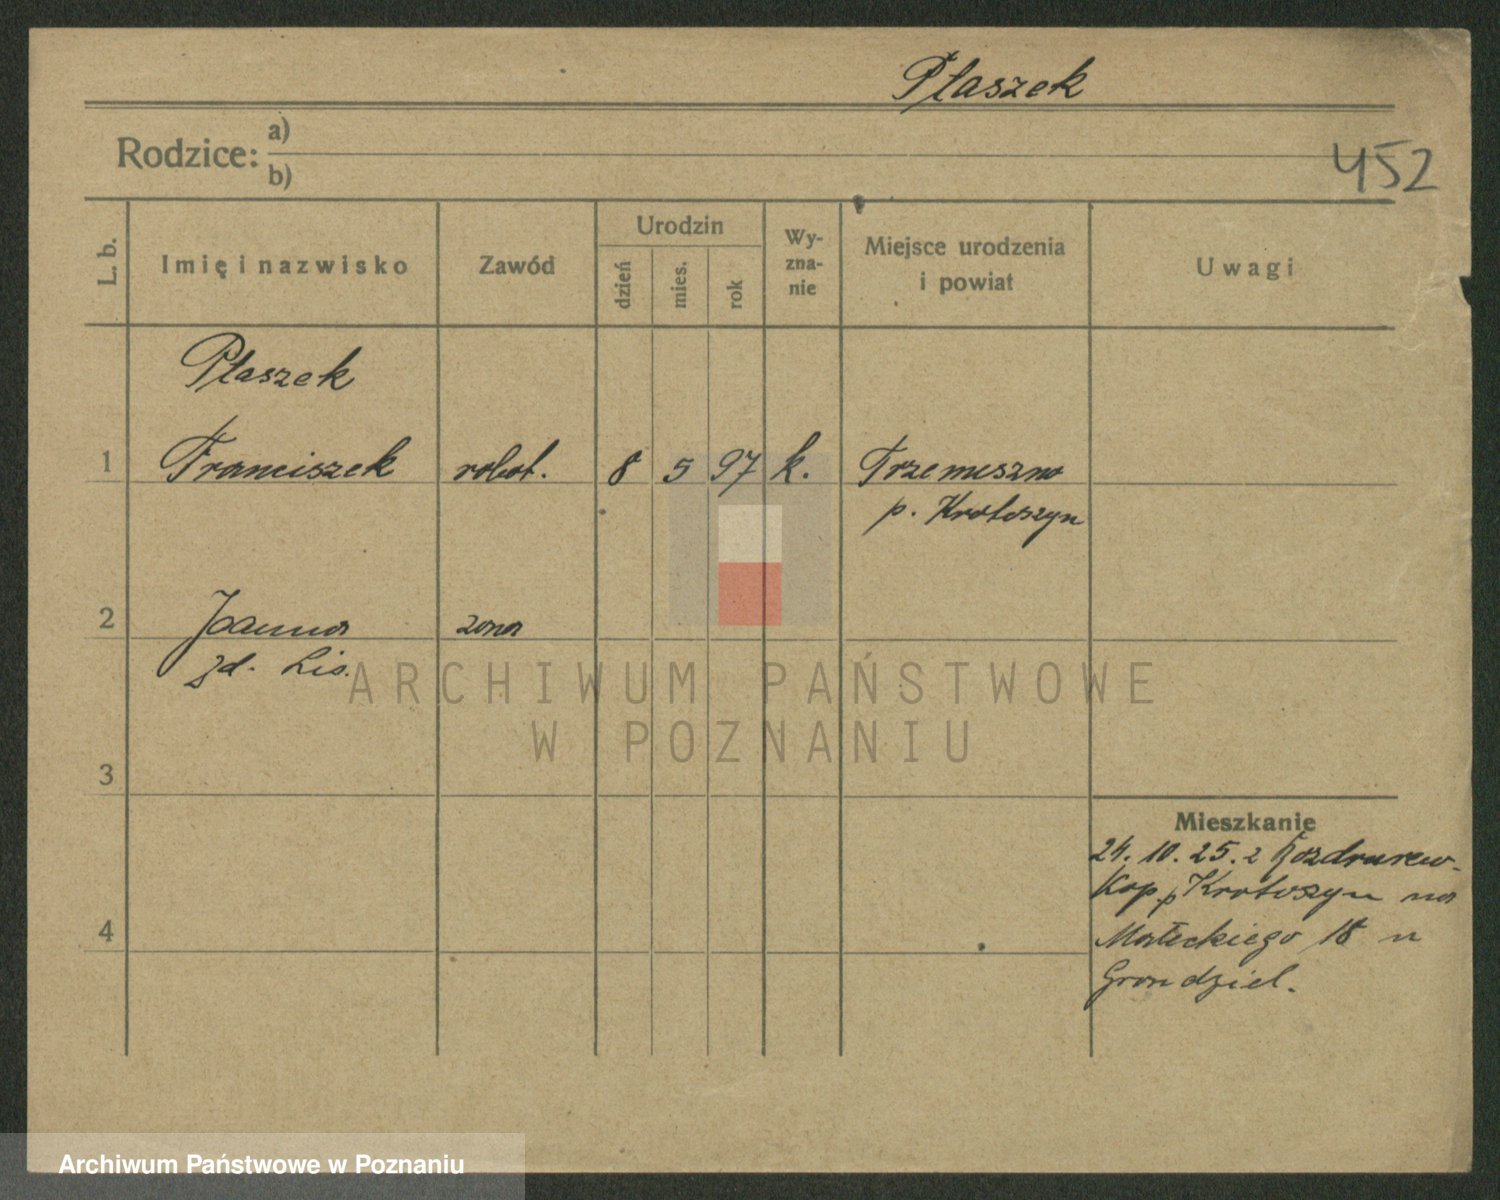 Ptaszek
Rodzice: a)
b)
452
L. b.
Imię i nazwisko
Zawód
Urodzin
dzień
mies.
rok
Wy-
zna-
nie
Miejsce urodzenia
i powiat
Uwagi
Ptaszek
1 Franciszek robot. 8 5 97 k. Trzemeszno
p. Krotoszyn
2 Joanna żona
zd. Lis.
ARCHIWUM PAŃSTWOWE
W POZNANIU
3
Mieszkanie
24. 10. 25. z
Kop. p Krotoszyn na
4
Małeckiego 18 u
Grondziel.
Archiwum Państwowe w Poznaniu